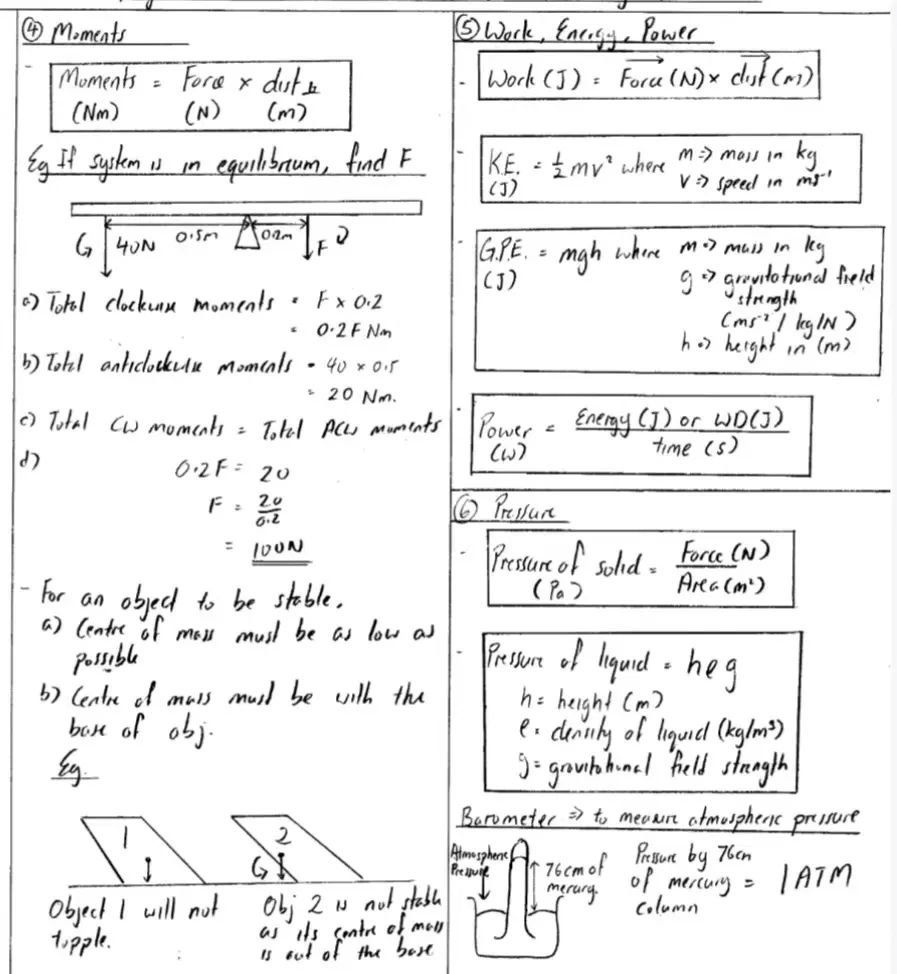 ④ Moments
- Moments = Force × dist ⊥
(Nm) (N) (m)
Eg If system is in equilibrium, find F
0.5m 0.2m
40N F
a) Total clockwise moments = F × 0.2
= 0.2F Nm
b) Total anticlockwise moments = 40 × 0.5
= 20 Nm.
c) Total CW moments = Total ACW moments
d) 0.2F = 20
F = 20/0.2
= 100N
- For an object to be stable,
a) Centre of mass must be as low as
possible
b) Centre of mass must be with the
base of obj.
Eg.
1 2
Object 1 will not
topple.
Obj 2 is not stable
as its centre of mass
is out of the base
⑤ Work, Energy, Power
- Work (J) = Force (N) × dist (m)
- K.E. = ½ mv² where m => mass in kg
(J) v => speed in ms⁻¹
- G.P.E. = mgh where m => mass in kg
(J) g => gravitational field
strength
(ms⁻² / kg/N)
h => height in (m)
- Power = Energy (J) or WD(J)
(W) time (s)
⑥ Pressure
- Pressure of solid = Force (N)
(Pa) Area (m²)
- Pressure of liquid = hρg
h = height (m)
ρ = density of liquid (kg/m³)
g = gravitational field strength
Barometer => to measure atmospheric pressure
Atmospheric
Pressure
76cm of
mercury
Pressure by 76cm
of mercury = 1 ATM
column